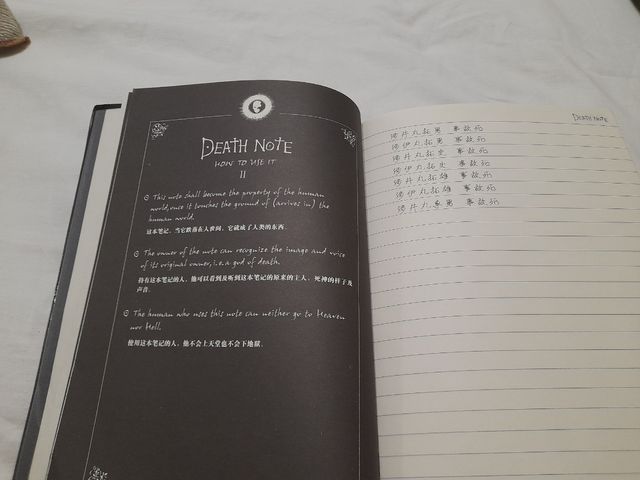 DEATH NOTE
HOW TO USE IT
II
This note shall become the property of the human
world, once it touches the ground of (arrives in) the
human world.
这本笔记，当它跌落在人世间，它就成了人类的东西。
The owner of the note can recognize the image and voice
of its original owner, i.e. a god of death.
持有这本笔记的人，他可以看到及听到这本笔记的原来的主人，死神的样子及
声音。
The human who uses this note can neither go to Heaven
nor Hell.
使用这本笔记的人，他不会上天堂也不会下地狱。
DEATH NOTE
渋井丸拓男 事故死
渋伊丸拓男 事故死
渋井丸拓史 事故死
渋伊丸拓史 事故死
渋井丸拓雄 事故死
渋伊丸拓雄 事故死
渋井丸 男 事故死